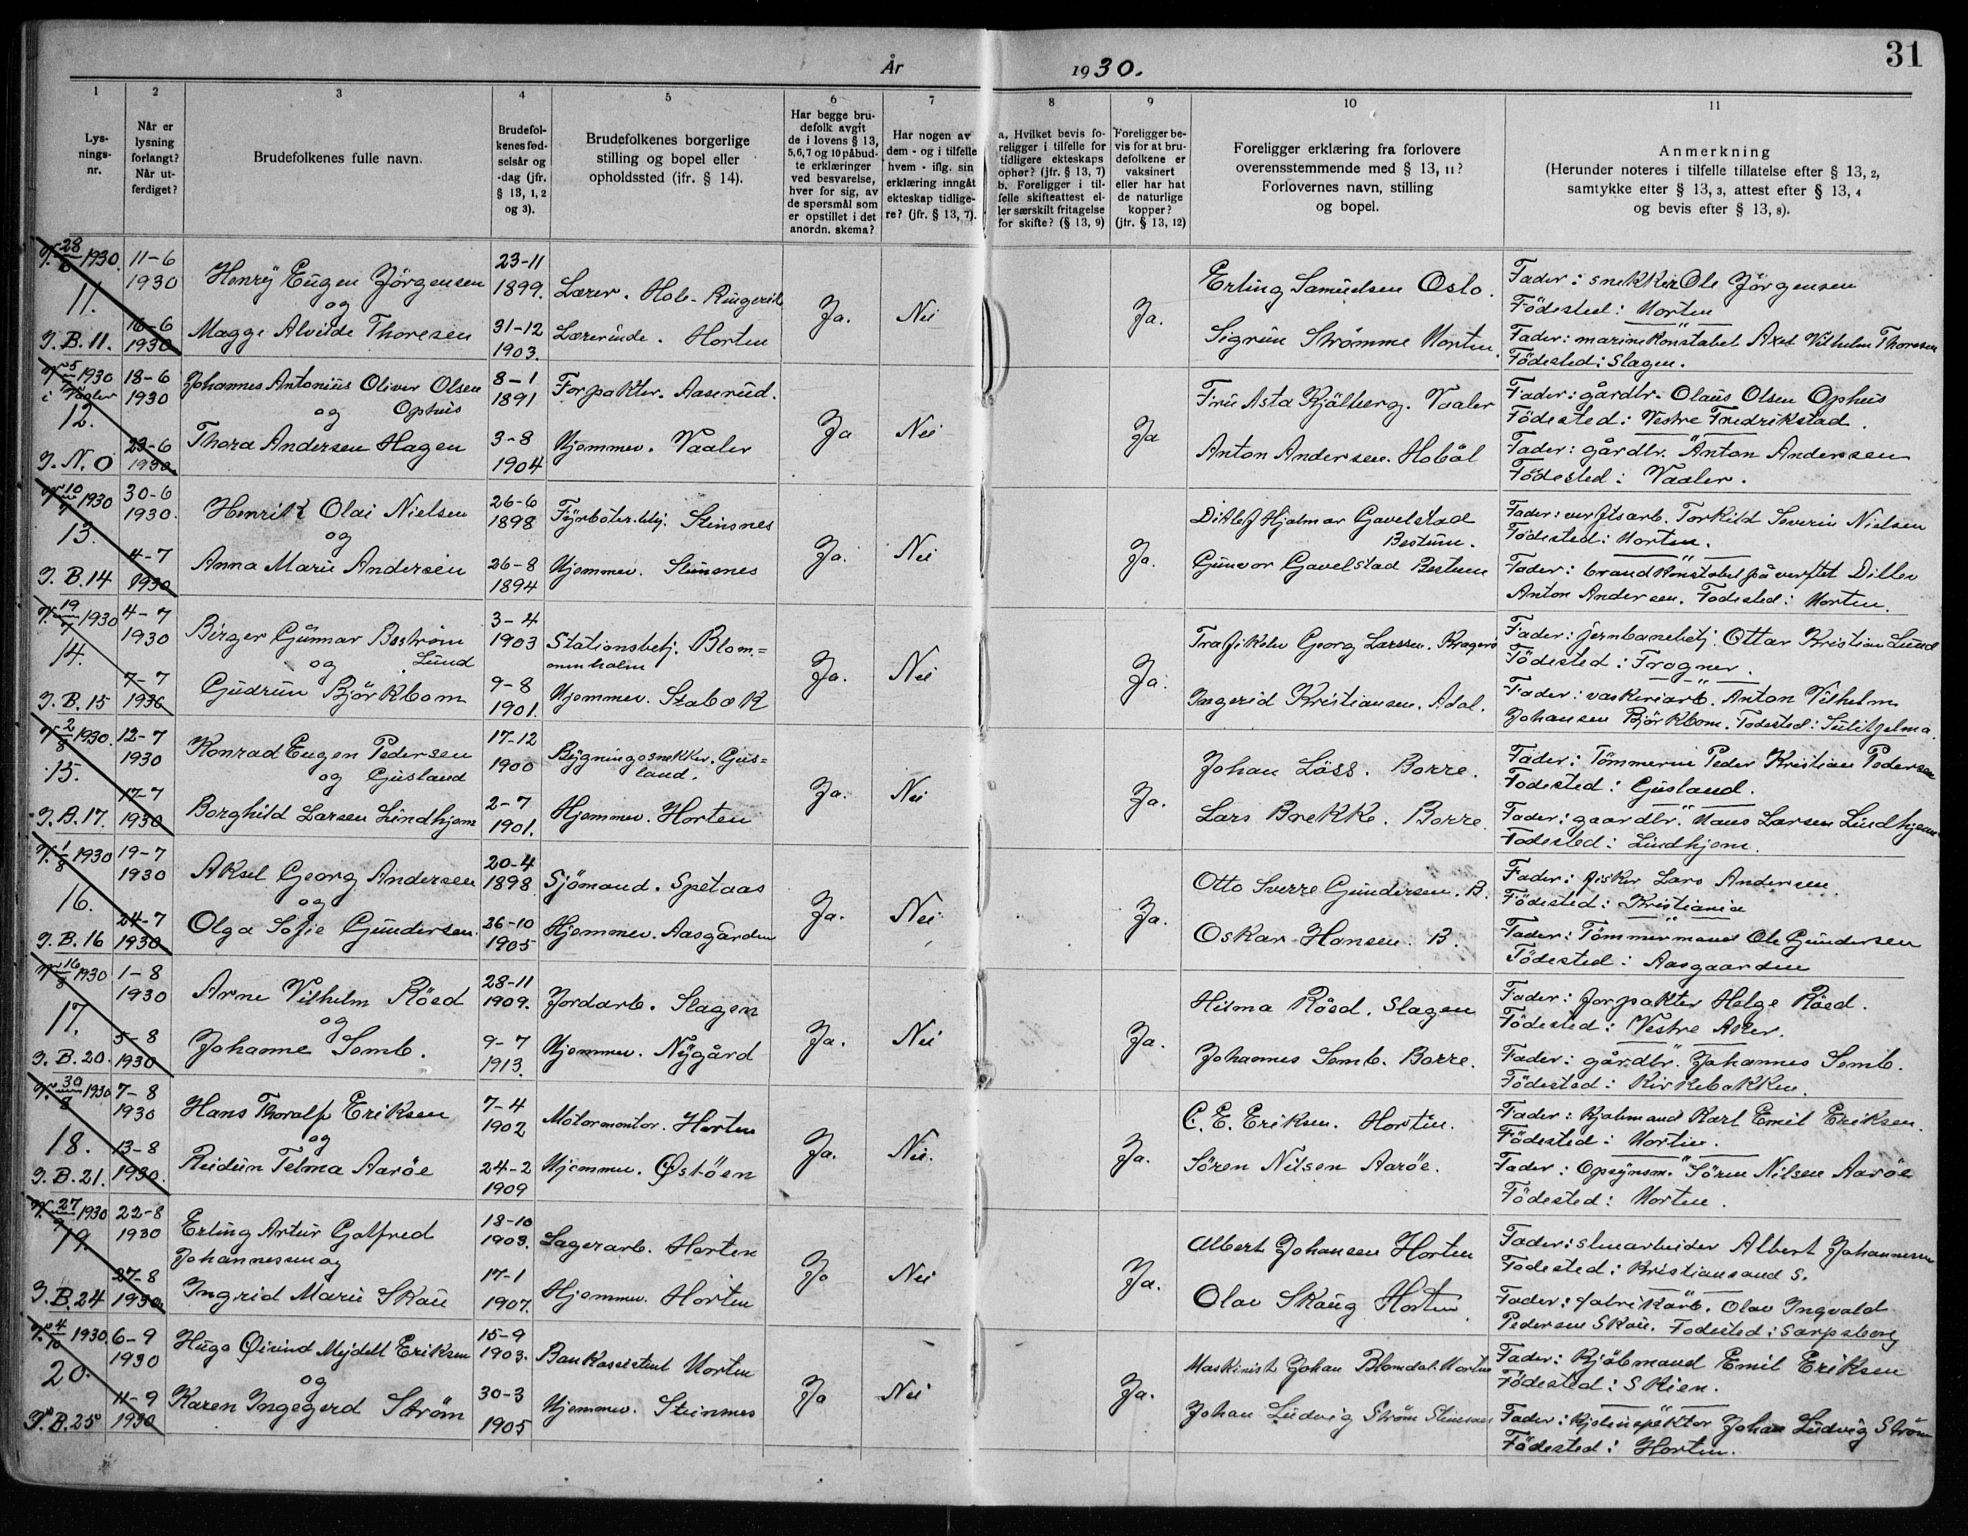 31
År 1930.
1 2 3 4 5 6 7 8 9 10 11
Lys-
nings-
nr.
Når er
lysning
forlangt?
Når ut-
ferdiget?
Brudefolkenes fulle navn.
Brudefol-
kenes fød-
selsår og
-dag (jfr.
§ 13, 1, 2
og 3).
Brudefolkenes borgerlige
stilling og bopel eller
opholdssted (jfr. § 14).
Har begge bru-
defolk avgit
de i lovens § 13,
5, 6, 7 og 10 påbud-
te erklæringer
ved besvarelse,
hver for sig, av
de spørsmål som
er opstillet i det
anordn. skema?
Har nogen av
dem - og i tilfelle
hvem - iflg. sin
erklæring inngått
ekteskap tidlige-
re? (jfr. § 13, 7).
a. Hvilket bevis fo-
religger i tilfelle for
tidligere ekteskaps
ophør? (jfr. § 13, 7)
b. Foreligger i til-
felle skifteattest el-
ler særskilt fritagelse
for skifte? (§ 13, 9)
Foreligger be-
vis for at bru-
defolkene er
vaksinert
eller har hat
de naturlige
kopper?
(jfr. § 13, 12)
Foreligger erklæring fra forlovere
overensstemmende med § 13, 11?
Forlovernes navn, stilling
og bopel.
Anmerkning
(Herunder noteres i tilfelle tillatelse efter § 13, 2,
samtykke efter § 13, 3, attest efter § 13, 4
og bevis efter § 13, 8).
V. 28/6 1930. 11-6 1930 Henry Eugen Jörgensen 23-11 1899. Lærer. Hole-Ringerik Erling Samuelsen Oslo. Fader: snekker Ole Jörgensen
11. og Ja. Nei Ja. Födested: Horten
J.B. 11. 16-6 1930 Magge Alvilde Thoresen 31-12 1903. Lærerinde. Horten Sigrun Strømme Horten. Fader: marinekonstabel Axel Vilhelm Thoresen
Födested: Slagen.
V. 5/7 1930 i Vaaler 18-6 1930 Johannes Antonius Oliver Olsen 8-1 1891 Forpakter. Aaserud. Fru Asta Kjölberg. Vaaler Fader: gårdbr. Olaus Olsen Ophus
12. og Ophus Ja Nei Ja Födested: Vestre Fredrikstad.
J.N. 0 23-6 1930. Thora Andersen Hagen 3-8 1904 Hjemmev. Vaaler Anton Andersen. Hobøl Fader: gårdbr. Anton Andersen
Födested: Vaaler.
V. 10/7 1930 30-6 1930. Henrik Olai Nielsen 26-6 1898 Fyrböter.betj. Steinsnes Ditlef Hjalmar Gavelstad Bestum. Fader: verftsarb. Torkild Severin Nielsen
13. og Ja. Nei Ja. Födested: Horten.
J.B. 14 4-7 1930 Anna Marie Andersen 26-8 1894 Hjemmev. Steinsnes Gunvor Gavelstad Bestum Fader: brandkonstabel på verftet Ditlev
Anton Andersen. Födested: Horten.
V. 19/7 1930 4-7 1930 Birger Gunnar Boström 3-4 1903 Stationsbetj. Blom-
menholm Trafikelev Georg Larssen. Kragerö Fader: jernbanebetj. Ottar Kristian Lund
14. og Lund Ja. Nei Ja. Födested: Frogner.
J.B. 15 7-7 1930 Gudrun Björkbom 9-8 1901. Hjemmev. Stabæk Ingerid Kristiansen. Adal. Fader: vaskeriarb. Anton Vilhelm
Johansen Björkbom. Födested: Sulitjelma.
V. 2/8 1930. 12-7 1930 Konrad Eugen Pedersen 17-12 1900 Bygningssnekker. Gus-
land. Johan Löss. Borre. Fader: Tömmerm Peder Kristian Pedersen
15. og Gusland Ja. Nei Ja. Födested: Gusland.
J.B. 17. 17-7 1930 Borghild Larsen Lindhjem 2-7 1901. Hjemmev. Horten Lars Brekke. Borre. Fader: gaardbr. Hans Larsen Lindhjem
Födested: Lindhjem.
V. 1/8 1930 19-7 1930 Aksel Georg Andersen 20-4 1898 Sjömand. Spetaas Otto Sverre Gundersen. B. Fader: fisker Lars Andersen.
16. og Ja. Nei Ja. Födested: Kristiania
J.B. 16 24-7 1930 Olga Sofie Gundersen. 26-10 1905 Hjemmev. Aasgården Oskar Hansen. B. Fader: Tömmermand Ole Gundersen
Födested: Aasgaarden
V. 16/8 1930 1-8 1930 Arne Vilhelm Röed 28-11 1909. Jordarb. Slagen Hilma Röed. Slagen Fader: forpakter Helge Röed.
17. og Ja. Nei Ja. Födested: Vestre Aker.
J.B. 20. 5-8 1930 Johanne Semb. 9-7 1913. Hjemmev. Nygård Johannes Semb. Borre. Fader: gårdbr. Johannes Semb.
Födested: Kirkebakken.
V. 30/8 1930 7-8 1930 Hans Thoralf Eriksen 7-4 1902 Motormontör. Horten C. E. Eriksen. Horten. Fader: Kjöbmand Karl Emil Eriksen.
18. og Ja. Nei. Ja. Födested: Horten.
J.B. 21. 13-8 1930. Reidun Telma Aaröe 24-2 1909 Hjemmev. Østöen Sören Nilsen Aaröe. Fader: Opsynsm. Sören Nilsen Aaröe
Födested: Horten.
V. 27/9 1930 22-8 1930 Erling Artur Golfred 18-10 1903. Lagerarb. Horten Albert Johansen Horten Fader: stenarbeider Albert Johannesen
19. Johannessen og Ja Nei Ja. Födested: Kristiansand S.
J.B. 24 27-8 1930. Ingrid Marie Skau 17-1 1907. Hjemmev. Horten Olav Skaug Horten Fader: fabrikarb. Olav Ingvald
Pedersen Skau. Födested: Sarpsborg
V. 4/10 1930 6-9 1930 Hugo Øivind Mejdell Eriksen 15-9 1903. Bankassistent Horten Maskinist Johan Blomdal. Horten Fader: Kjöbmand Emil Eriksen
20. og Ja Nei Ja. Födested: Skien.
J.B. 25 11-9 1930 Karen Ingegerd Ström 30-3 1905 Hjemmev. Steinsnes Johan Ludvig Ström Steinsnes Fader: Kjelinspektör Johan Ludvig Ström
Födested: Horten.